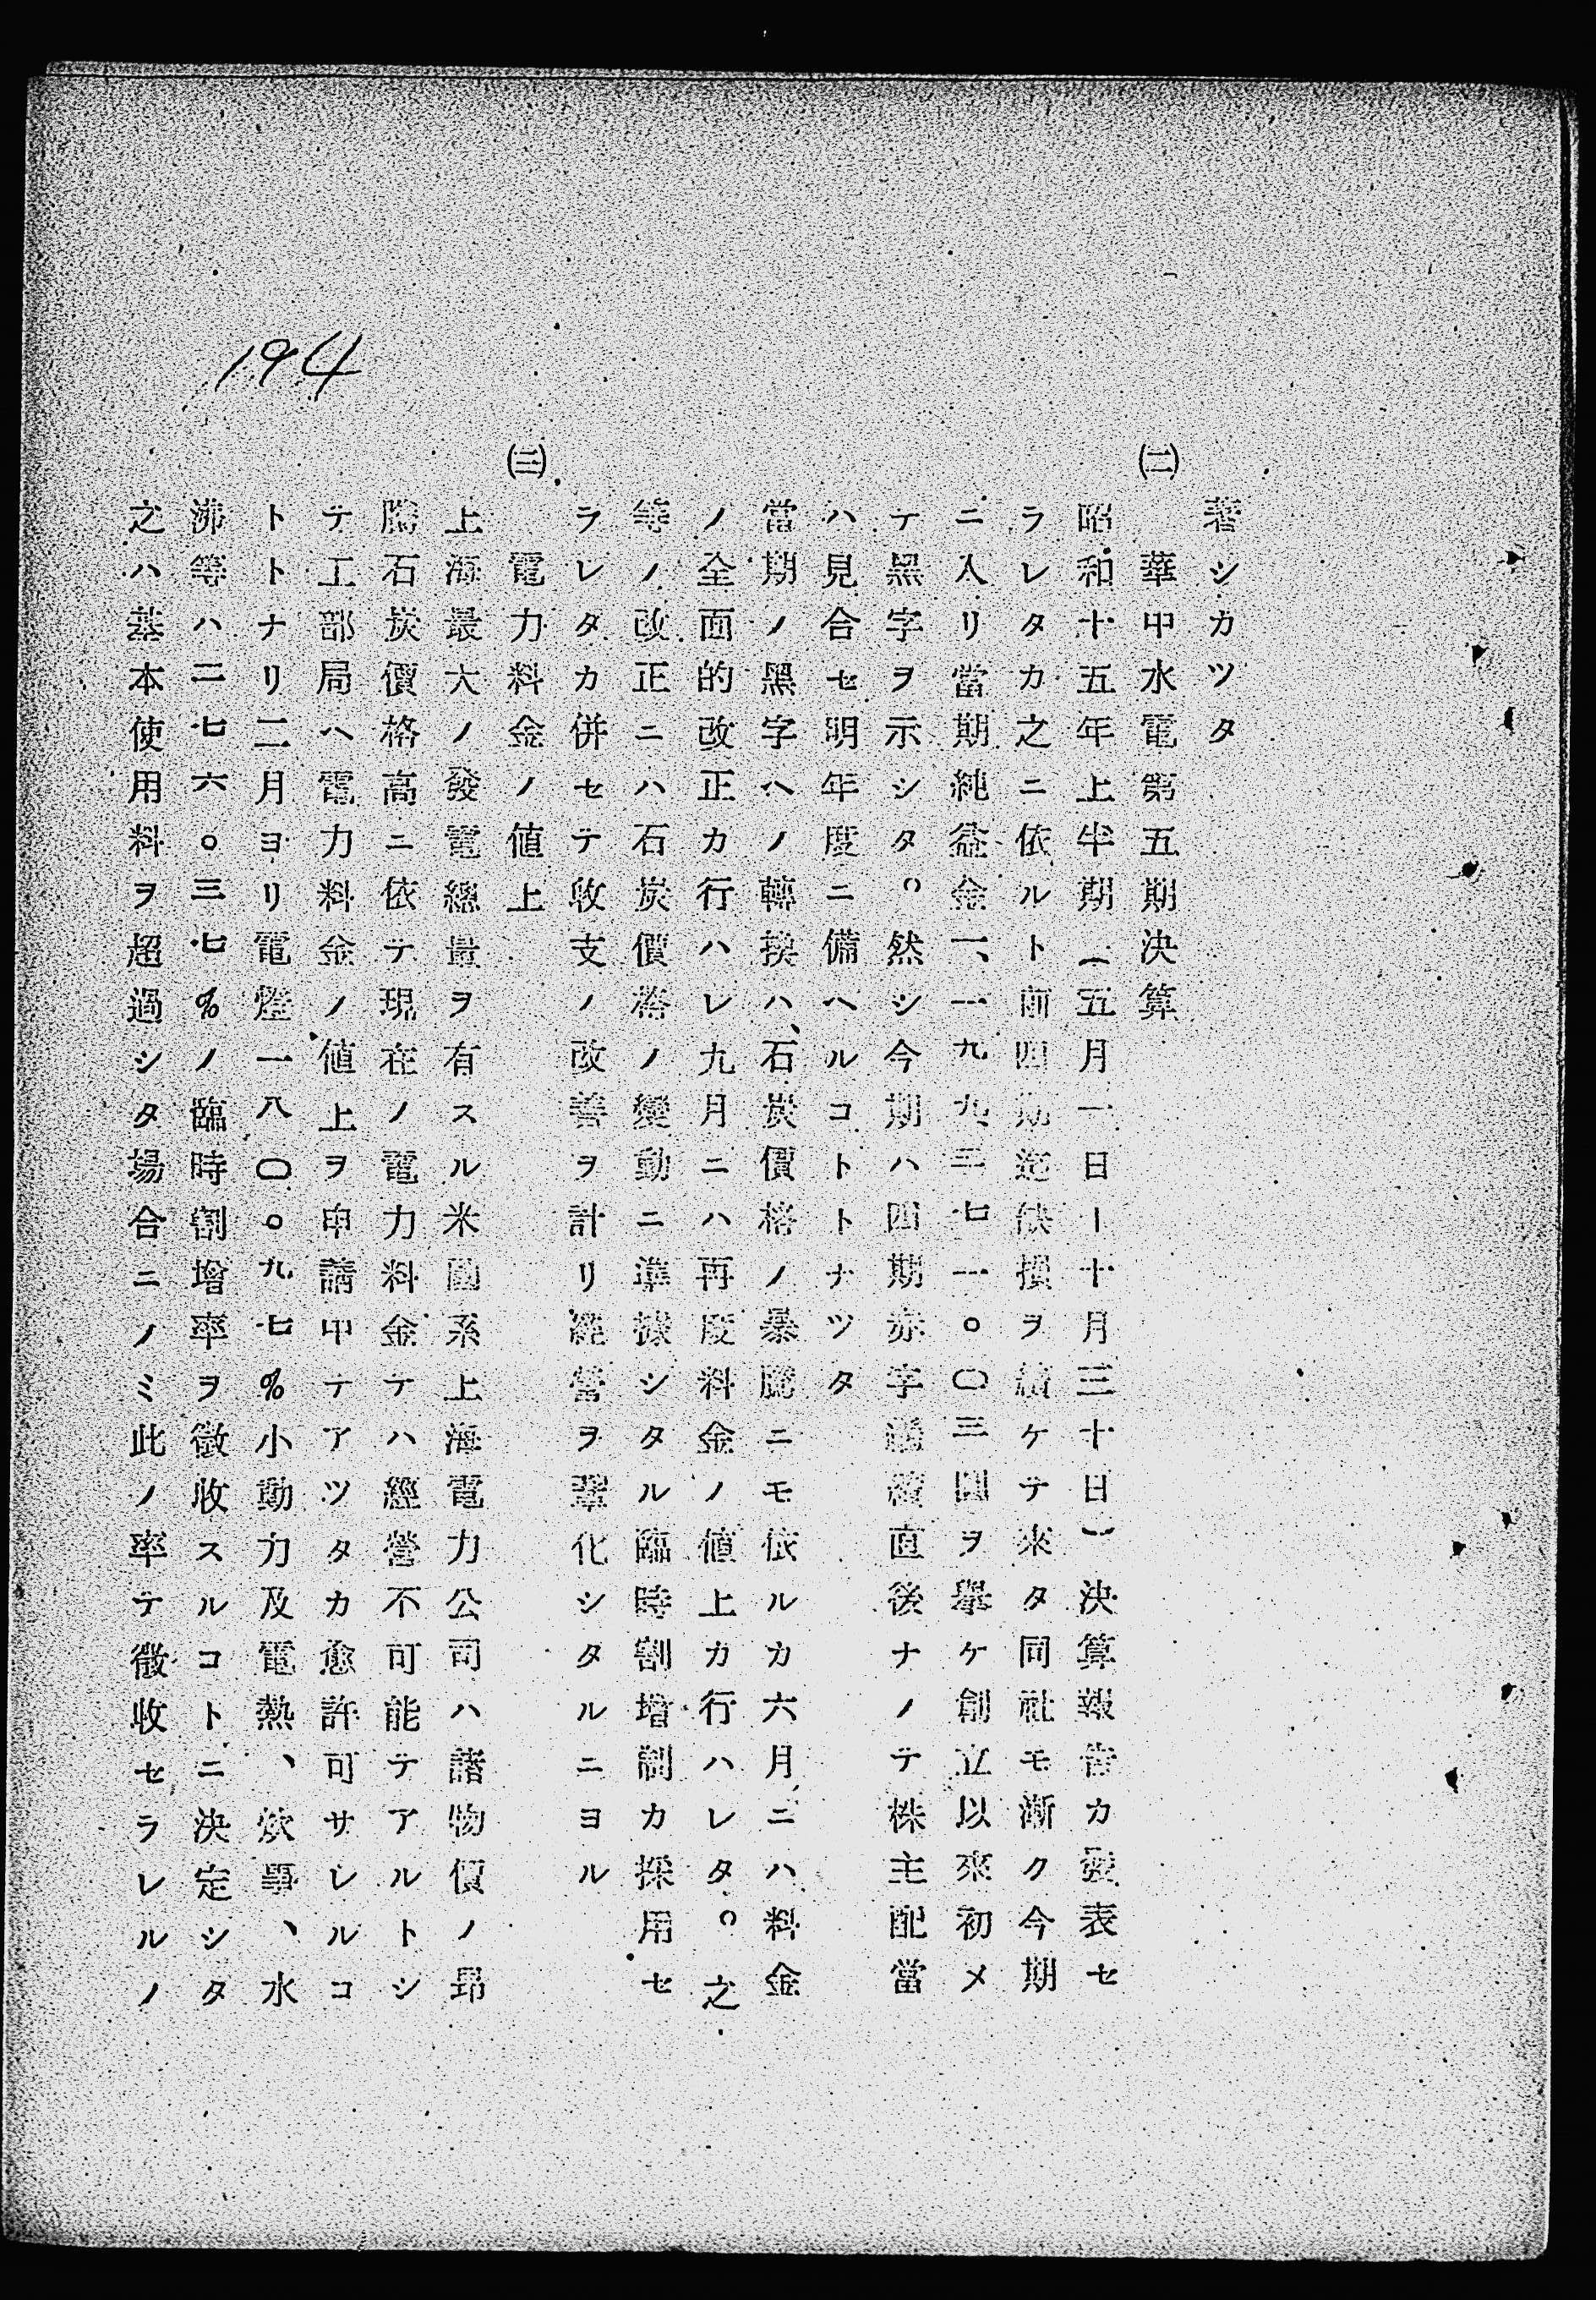 194
著シカツタ
㈡ 華中水電第五期決算
昭和十五年上半期(五月一日ー十月三十日)決算報告カ發表セ
ラレタカ之ニ依ルト前四期迄缺損ヲ續ケテ來タ同社モ漸ク今期
ニ入リ當期純益金一、一九九、三七一。〇三圓ヲ擧ケ創立以來初メ
テ黑字ヲ示シタ。然シ今期ハ四期赤字繼續直後ナノテ株主配當
ハ見合セ明年度ニ備ヘルコトトナツタ
當期ノ黑字ヘノ轉換ハ、石炭價格ノ暴騰ニモ依ルカ六月ニハ料金
ノ全面的改正カ行ハレ九月ニハ再度料金ノ値上カ行ハレタ。之
等ノ改正ニハ石炭價格ノ變動ニ準據シタル臨時割增制カ採用セ
ラレタカ併セテ收支ノ改善ヲ計リ經營ヲ鞏化シタルニヨル
㈢ 電力料金ノ値上
上海最大ノ發電總量ヲ有スル米國系上海電力公司ハ諸物價ノ昂
騰石炭價格高ニ依テ現在ノ電力料金テハ經營不可能テアルトシ
テ工部局ヘ電力料金ノ値上ヲ申請中テアツタカ愈許可サレルコ
トトナリ二月ヨリ電燈一八〇。九七%小動力及電熱、炊事、水
沸等ハ二七六。三七%ノ臨時割增率ヲ徵收スルコトニ決定シタ
之ハ基本使用料ヲ超過シタ場合ニノミ此ノ率テ徵收セラレルノ